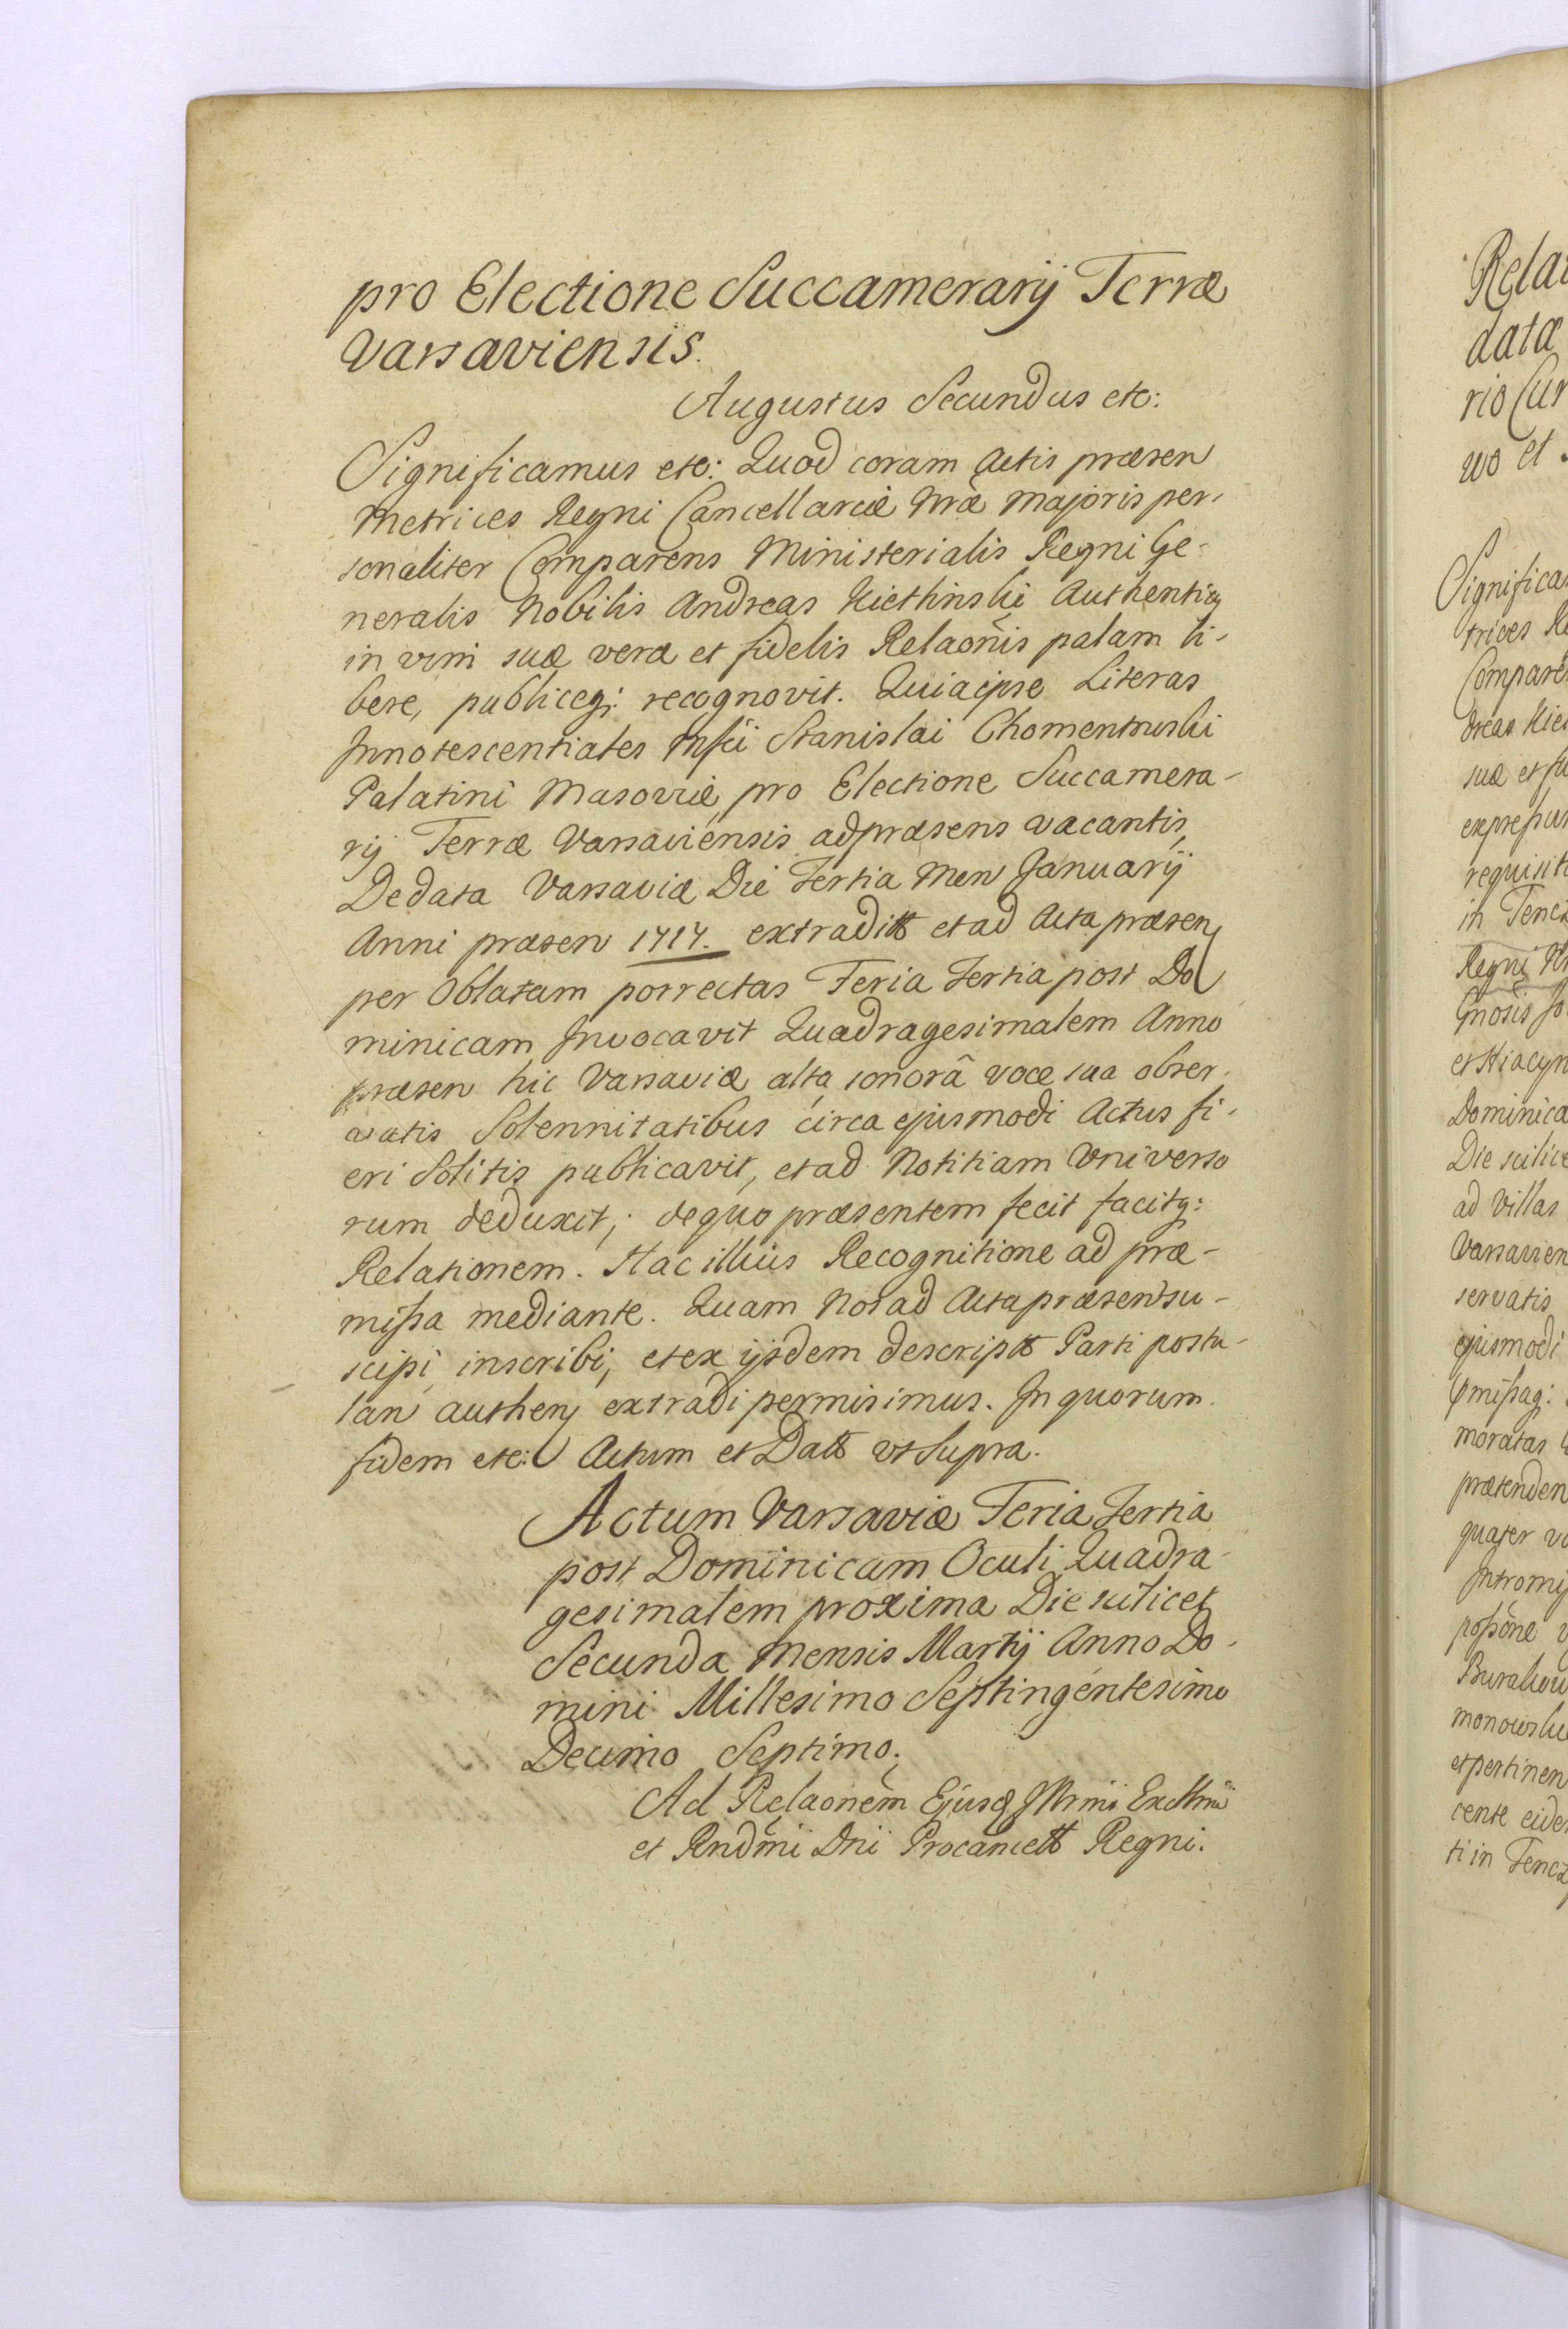 pro Electione Succamerarij Terræ
Varsaviensis.
Augustus Secundus etc:
Significamus etc: Quod coram Actis præsen
Metrices Regni Cancellariæ Nræ Majoris per-
sonaliter Comparens Ministerialis Regni Ge-
neralis Nobilis Andreas Authenticq
in vim suæ veræ et fidelis Relaonis palam li-
bere, publiceq: recognovit. Quia ipse Literas
Innotescentiales Mfci Stanislai Chomentowski
Palatini Masoviæ, pro Electione Succamera-
rij Terræ Varsaviensis ad præsens vacantis,
De data Varsaviæ Die Tertia Men Januarij
Anni præsen 1717. extraditt et ad Acta præsen
per Oblatam porrectas Feria Tertia post Do
minicam Invocavit Quadragesimalem Anno
præsen hic Varsaviæ alta sonorâ voce sua obser-
vatis Solennitatibus circa ejusmodi Actus fi-
eri Solitis publicavit, et ad Notitiam Universo
rum deduxit; de quo præsentem fecit facitq:
Relationem. Hac illius Recognitione ad præ-
missa mediante. Quam Nos ad Acta præsen su-
scipi, inscribi, et ex ijsdem descriptt Parti postu-
lan authen extradi permisimus. In quorum
fidem etc: Actum et Datt vt Supra.
Actum Varsaviæ Feria Tertia
post Dominicam Oculi Quadra-
gesimalem proxima Die scilicet
Secunda Mensis Martij Anno Do-
mini Millesimo Septingentesimo
Decimo Septimo.
Ad Relaonem Ejusd Illrmi Excllmi
et Rndmi Dni Procancett Regni.
Rela
data
rio Cur
wo et
Significa
trices Re
Compare
dreas Kie
suæ et fi
expressu
requisit
in Tencz
Regni
Gnosis
et Hiacyn
Dominica
Die scilice
ad Villas
Varsavien
servatis
ejusmodi
pmissaq:
moratas
prætenden
quater vo
Intromi
possone
Burakow
monowsk
et pertinen
cente eide
ti in Tencz